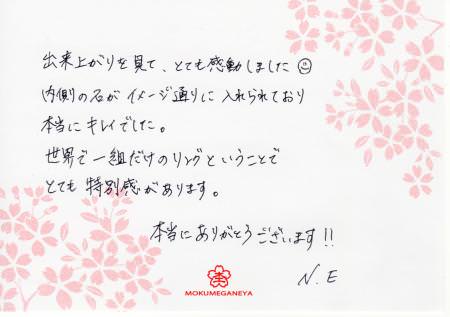 出来上がりを見て、とても感動しました☺
内側の石がイメージ通りに入れられており
本当にキレイでした。
世界で一組だけのリングということで
とても特別感があります。
本当にありがとうございます!!
N.E
MOKUMEGANEYA